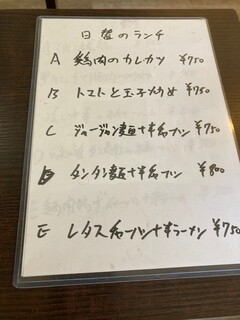 日替のランチ
A 鶏肉のカレカツ ¥750
B トマトと玉子炒め ¥750
C ジョージョン麺+半チャーハン ¥750
D タンタン麺+半チャーハン ¥800
E レタスチャーハン+半ラーメン ¥750